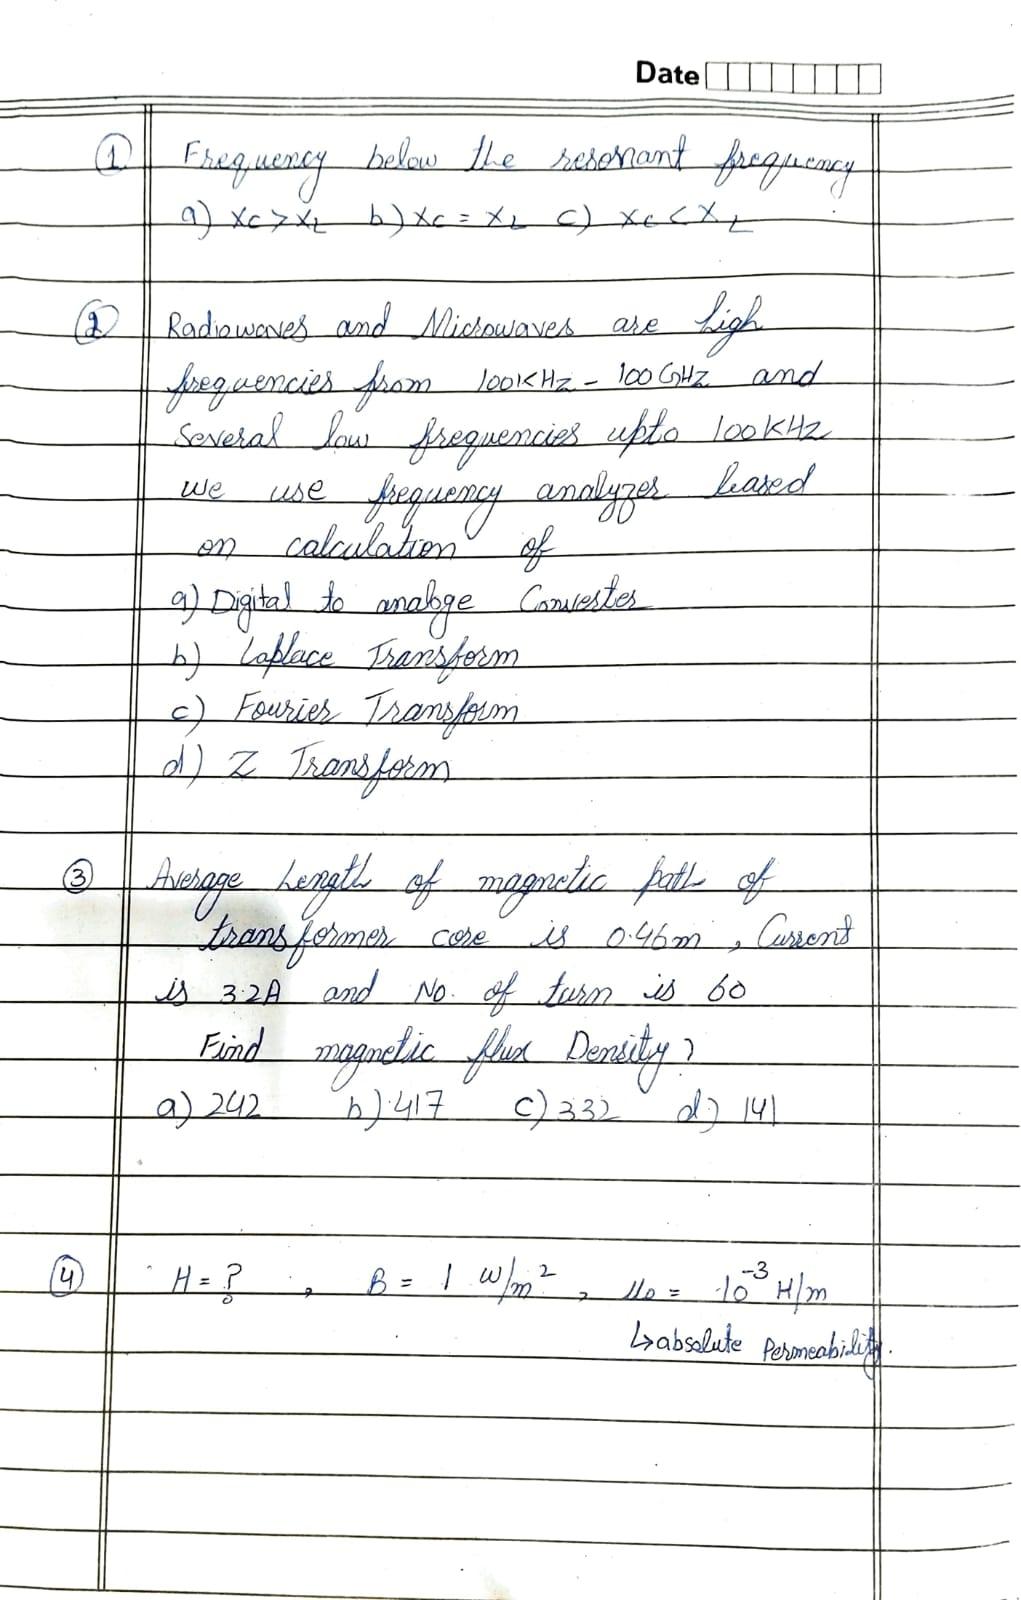 Date
① Frequency below the resonant frequency
a) Xc > XL b) Xc = XL c) Xc < XL
② Radiowaves and Microwaves are high
frequencies from 100KHz - 100 GHz and
several low frequencies upto 100KHz
we use frequency analyzer based
on calculation of
a) Digital to analoge Converter
b) Laplace Transform
c) Fourier Transform
d) Z Transform
③ Average Length of magnetic path of
transformer core is 0.46m, Current
is 3.2A and No. of turn is 60
Find magnetic flux Density?
a) 242 b) 417 c) 332 d) 141
④ H = ? , B = 1 W/m², μo = 10⁻³ H/m
↳ absolute Permeability.